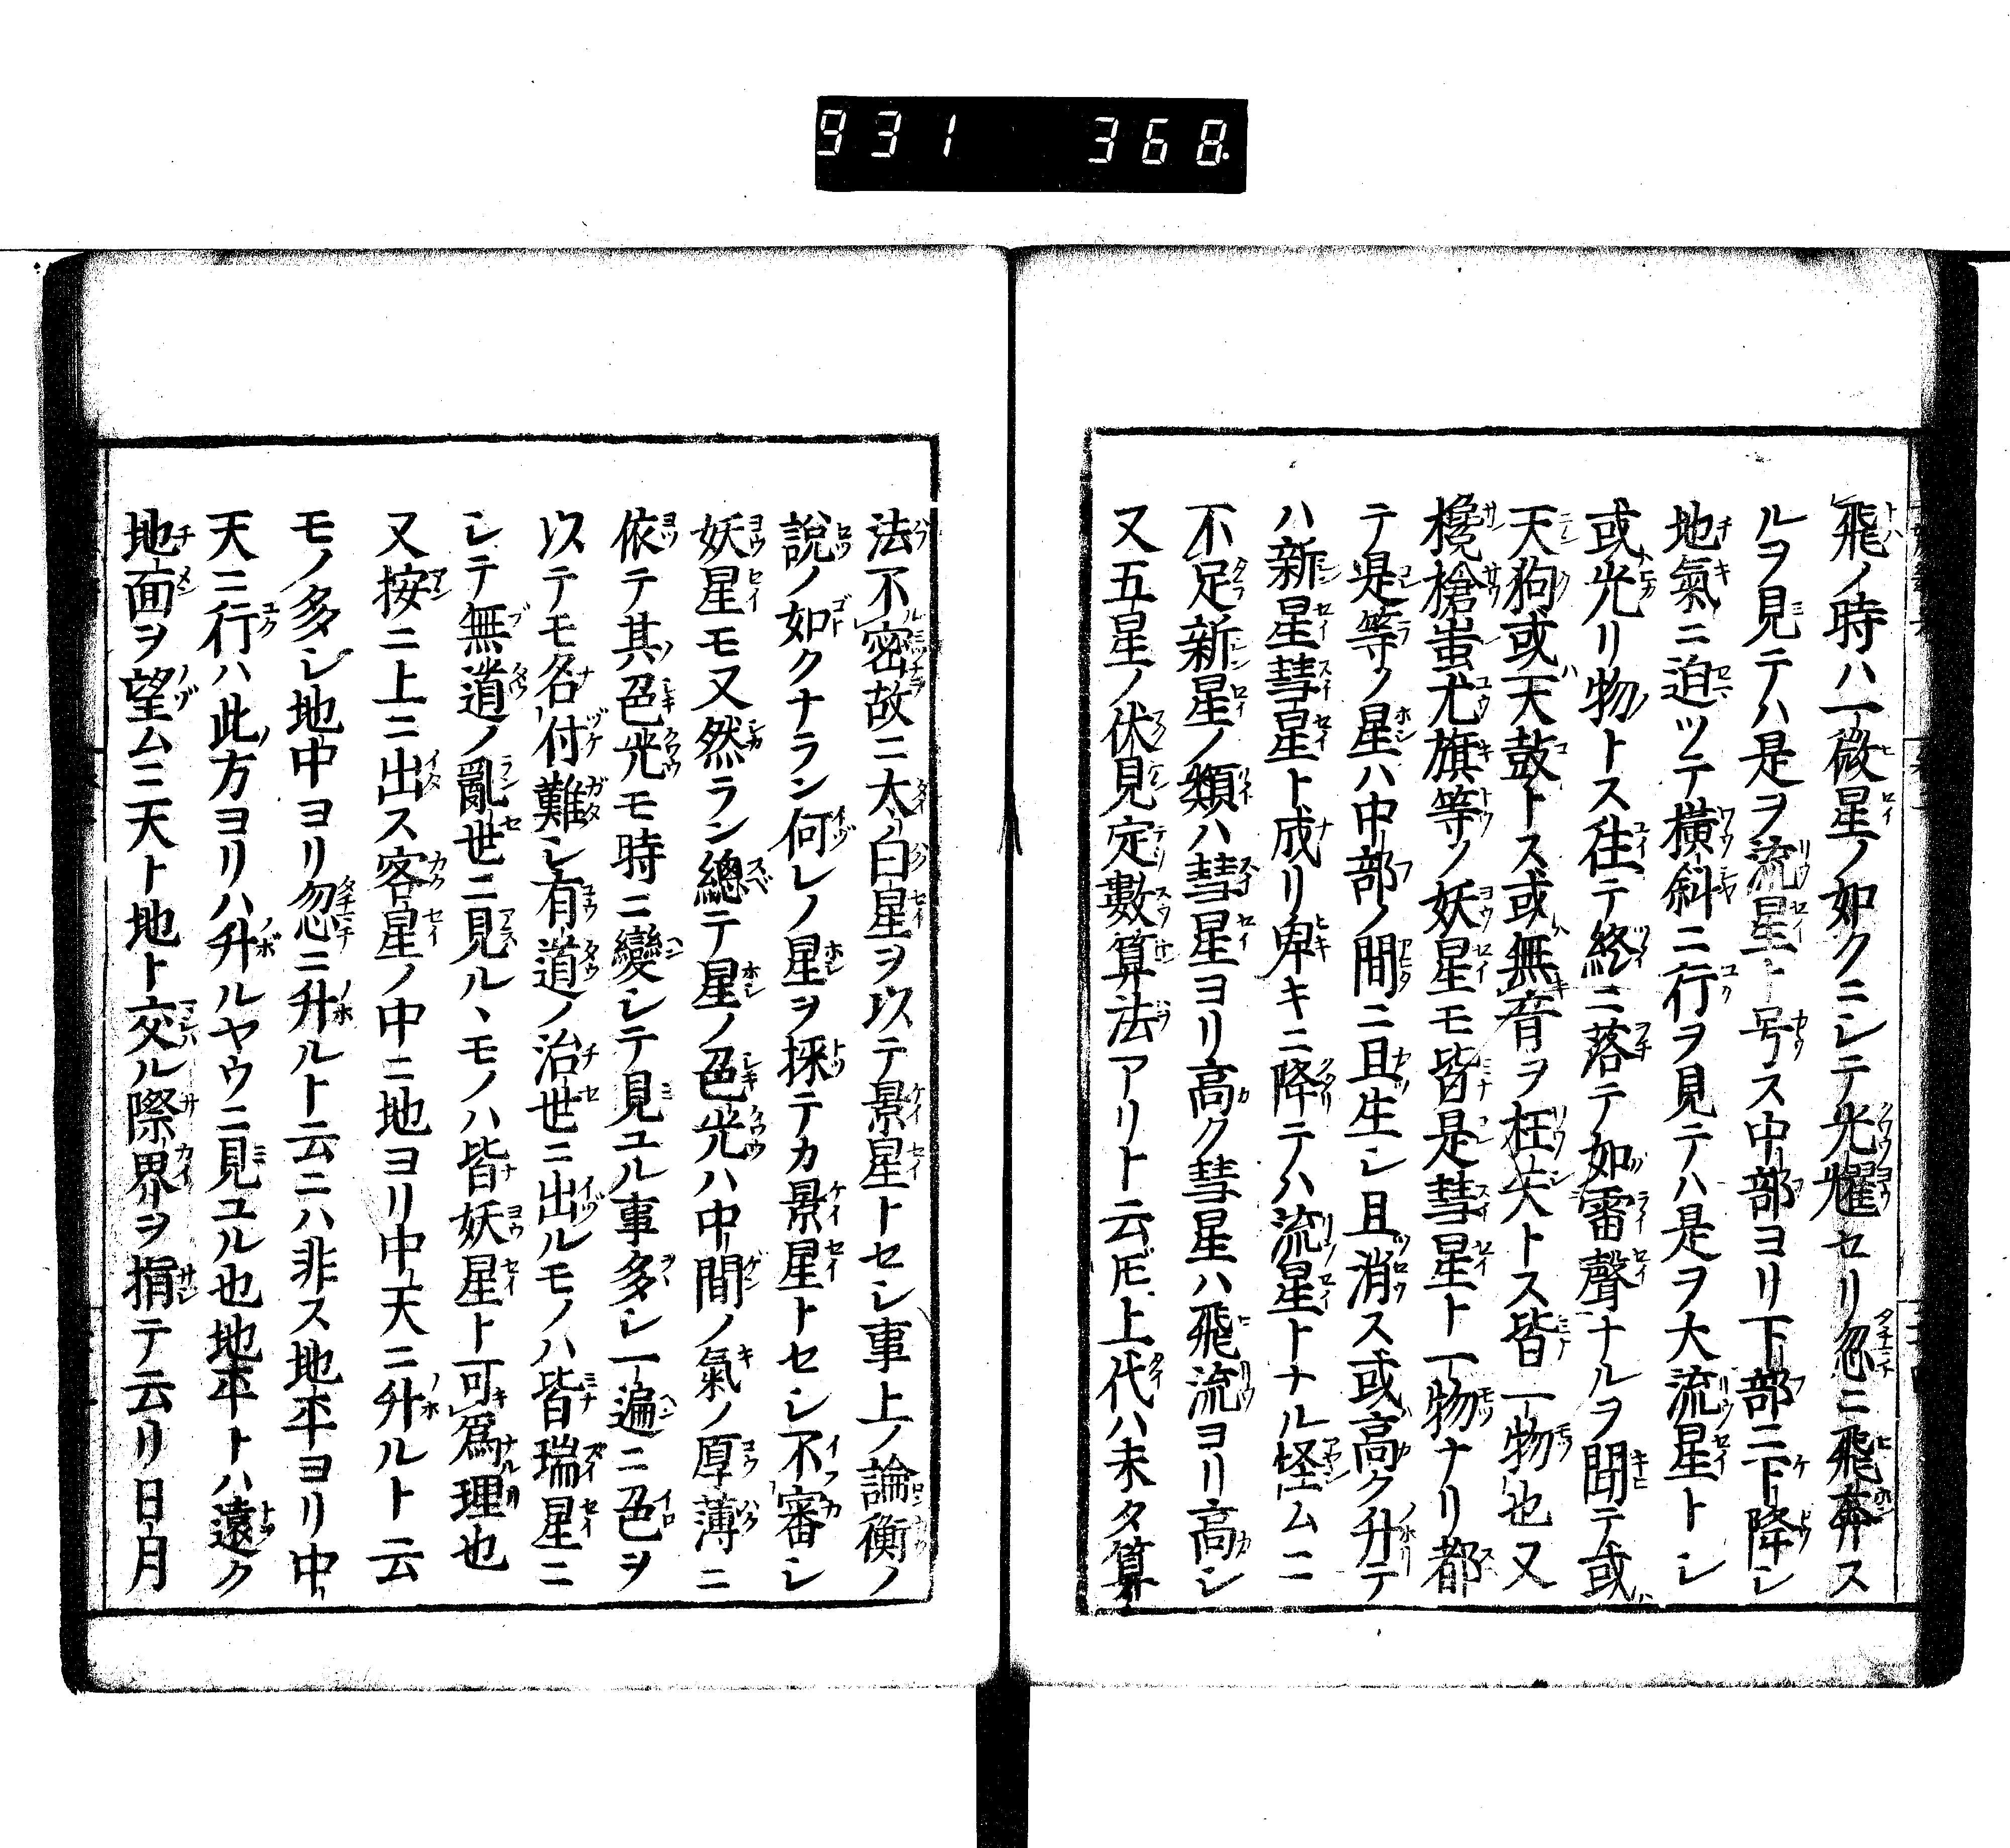 931 368
飛ノ時ハ一微星ノ如クニシテ光耀セリ忽ニ飛奔ス
ルヲ見テハ是ヲ流星ト号ス中部ヨリ下部ニ下降シ
地氣ニ迫ツテ横斜ニ行ヲ見テハ是ヲ大流星トシ
或光リ物トス往テ終ニ落テ如雷聲ナルヲ聞テ或
天狗或天鼓トス或無音ヲ枉矢トス皆一物也又
欃槍蚩尤旗等ノ妖星モ皆是彗星ト一物ナリ都
テ是等ノ星ハ中部ノ間ニ且生シ且消ス或高ク升テ
ハ新星彗星ト成リ卑キニ降テハ流星トナル怪ムニ
不足新星ノ類ハ彗星ヨリ高ク彗星ハ飛流ヨリ高シ
又五星ノ伏見定數算法アリト云𪜈上代ハ未タ算
法不密故ニ太白星ヲ以テ景星トセシ事上ノ論衡ノ
説ノ如クナラン何レノ星ヲ採テカ景星トセシ不審シ
妖星モ又然ラン總テ星ノ色光ハ中間ノ氣ノ厚薄ニ
依テ其色光モ時ニ變シテ見ユル事多シ一遍ニ色ヲ
以テモ名付難シ有道ノ治世ニ出ルモノハ皆瑞星ニ
シテ無道ノ亂世ニ見ルヽモノハ皆妖星ト可爲理也
又按ニ上ニ出ス客星ノ中ニ地ヨリ中天ニ升ルト云
モノ多シ地中ヨリ忽ニ升ルト云ニハ非ス地平ヨリ中
天ニ行ハ此方ヨリハ升ルヤウニ見ユル也地平トハ遠ク
地面ヲ望ムニ天ト地ト交ル際界ヲ捐テ云リ日月